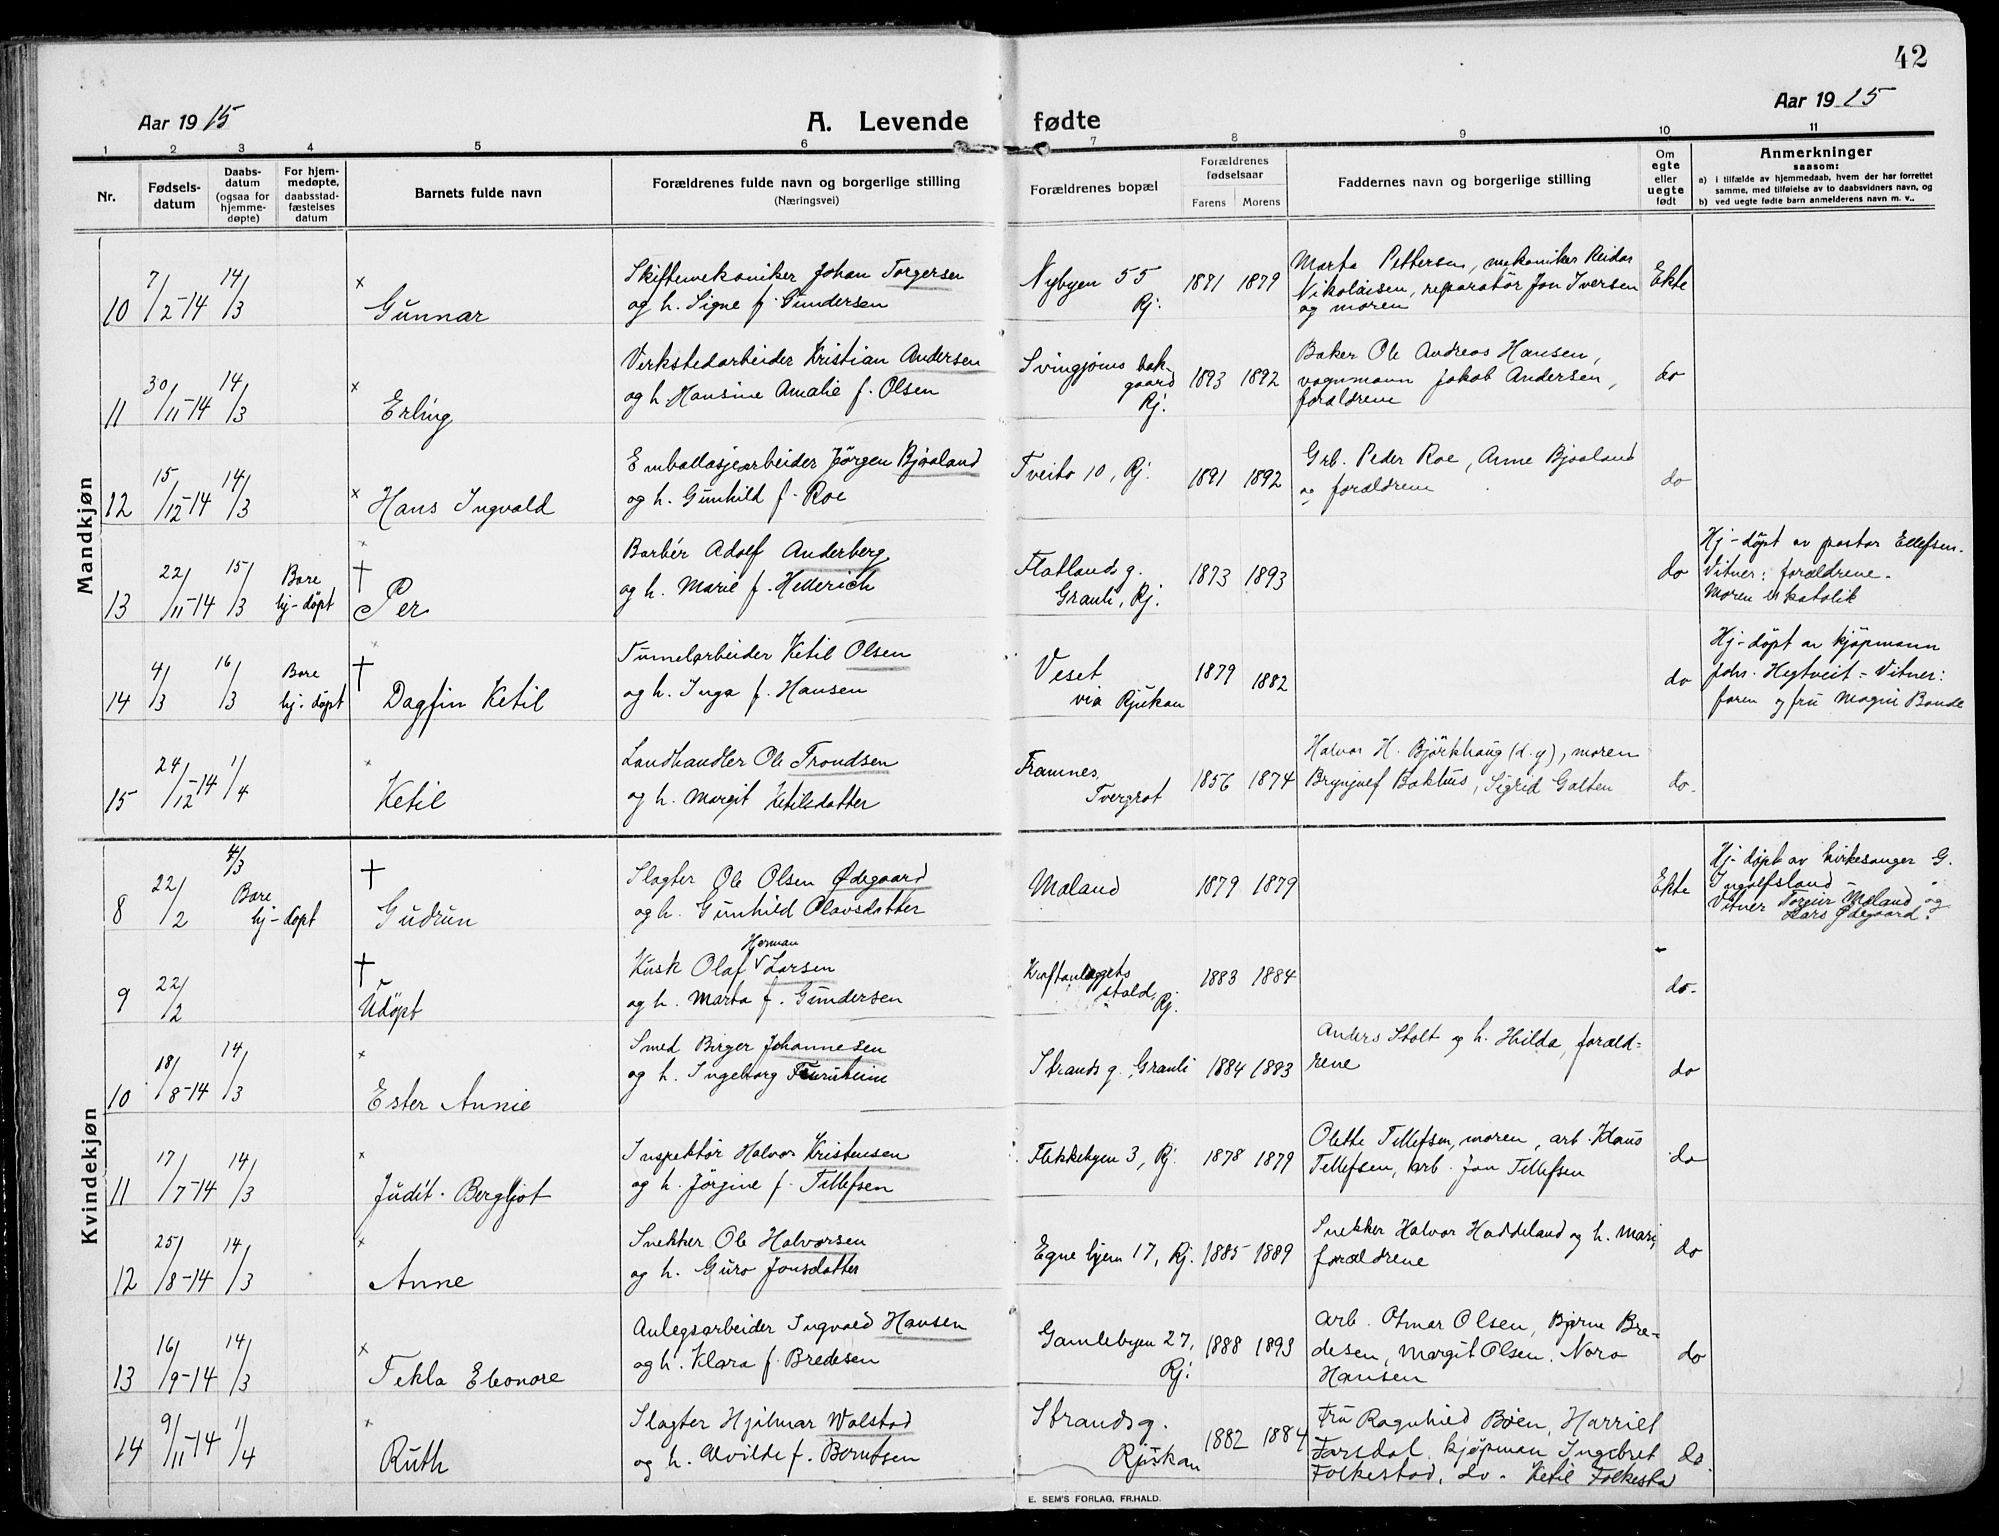 42
Aar 1915
A. Levende fødte
Aar 1915
1 2 3 4 5 6 7 8 9 10 11
Nr.
Fødsels-
datum
Daabs-
datum
(ogsaa for
hjemme-
døpte)
For hjem-
medøpte,
daabsstad-
fæstelses
datum
Barnets fulde navn
Forældrenes fulde navn og borgerlige stilling
(Næringsvei)
Forældrenes bopæl
Forældrenes
fødselsaar
Farens Morens
Faddernes navn og borgerlige stilling
Om
egte
eller
uegte
født
Anmerkninger
saasom:
a) i tilfælde av hjemmedaab, hvem der har forrettet
samme, med tilføielse av to daabsvidners navn, og
b) ved uegte fødte barn anmelderens navn m. v..
Mandkjøn
10 7/2-14 14/3 × Gunnar
Skiftemekaniker Johan Torgersen
og h. Signe f. Gundersen
Nybyen 55
Rj.
1891 1879
Marta Pettersen, mekaniker Reidar
Nikolaisen, reparatør Jon Iversen
og moren
Ekte
11 30/11-14 14/3 × Erling
Verkstedarbeider Kristian Andersen
og h. Hansine Amalie f. Olsen
Svingjoms bak-
gaard
Rj.
1893 1892
Baker Ole Andreas Hansen,
vognmann Jakob Andersen,
forældrene
do
12 15/12-14 14/3 × Hans Ingvald
Emballasjearbeider Jörgen Bjaaland
og h. Gunhild f. Roe
Tveito 10, Rj.
1891 1892
Grb. Peder Roe, Anne Bjaaland
og forældrene
do
13 22/11-14 15/3 Bare
hj-döpt
† Per
Barbér Adolf Anderberg
og h. Marie f. Hellerich
Flatlands g.
Granli, Rj.
1873 1893
do
Hj-döpt av pastor Ellefsen.
Vitner: forældrene.
Moren er katolik
14 4/3 16/3 Bare
hj. döpt
† Dagfin Ketil
Tunnelarbeider Ketil Olsen
og h. Inga f. Hansen
Veset
via Rjukan
1879 1882
do
Hj-döpt av kjöpmann
Johs. Hegtveit - Vitner:
faren og fru Magni Bonde
15 24/12-14 1/4 × Ketil
Landhandler Ole Trondsen
og h. Margit Ketilsdatter
Framnes,
Tvergrot
1856 1874
Halvor H. Björkhaug (d.y), moren
Brynjulf Bakhus, Sigrid Galten
do.
Kvindekjøn
8 22/2 4/3
Bare
hj-döpt
† Gudrun
Slagter Ole Olsen Ødegaard
og h. Gunhild Olavsdatter
Mæland
1879 1879
Ekte
Hj-döpt av kirkesanger G.
Ingolfsland -
Vitner Torgeir Mæland og
Lars Ødegaard.
9 22/2 † Udöpt
Herman
Kusk Olaf Larsen
og h. Marta f. Gundersen
Kraftanlæggets
stald, Rj.
1883 1884
do.
10 18/8-14 14/3 × Ester Annie
Smed Birger Johannesen
og h. Ingeborg Furuheim
Strands g., Granli
1884 1883
Anders Stolt og h. Hilda, foræld-
rene
do
11 17/7-14 14/3 × Judit Bergljot
Inspektör Halvor Kristensen
og h. Jörgine f. Tillefsen
Flekkebyen 3, Rj.
1878 1879
Olette Tillefsen, moren, arb. Klaus
Tellefsen, arb. Jon Tillefsen
do
12 25/8-14 14/3 × Anne
Snekker Ole Halvorsen
og h. Guro Jonsdatter
Egne hjem 17, Rj.
1885 1889
Snekker Halvor Haddeland og h. Mari,
forældrene
do
13 16/9-14 14/3 × Tekla Eleonore
Anlegsarbeider Ingvald Hansen
og h. Klara f. Bredesen
Gamlebyen 27,
Rj.
1888 1893
Arb. Otmar Olsen, Bjarne Bre-
desen, Margit Olsen. Nora
Hansen
do
14 9/11-14 1/4 × Ruth
Slagter Hjalmar Walstad
og h. Alvilde f. Berntsen
Strands g.
Rjukan
1882 1884
Fru Ragnhild Böen, Harriet
Farsdal, kjöpman Ingebret
Folkestad, do. Ketil Folkesta
do.
E. SEM'S FORLAG, FR.HALD.